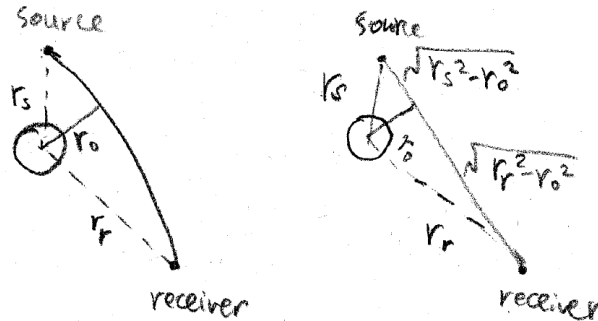 source
r_s
r_0
r_r
receiver
source
r_s
√(r_s²-r_0²)
r_0
√(r_r²-r_0²)
r_r
receiver